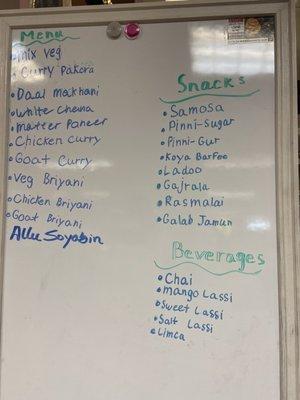 Menu
mix veg
Curry Pakora
Daal makhani
White Chena
Matter Paneer
Chicken Curry
Goat Curry
Veg Briyani
Chicken Briyani
Goat Briyani
Allu Soyabin
Snacks
Samosa
Pinni-Sugar
Pinni-Gur
Koya Barfee
Ladoo
Gajrala
Rasmalai
Galab Jamun
Beverages
Chai
mango Lassi
Sweet Lassi
Salt Lassi
Limca